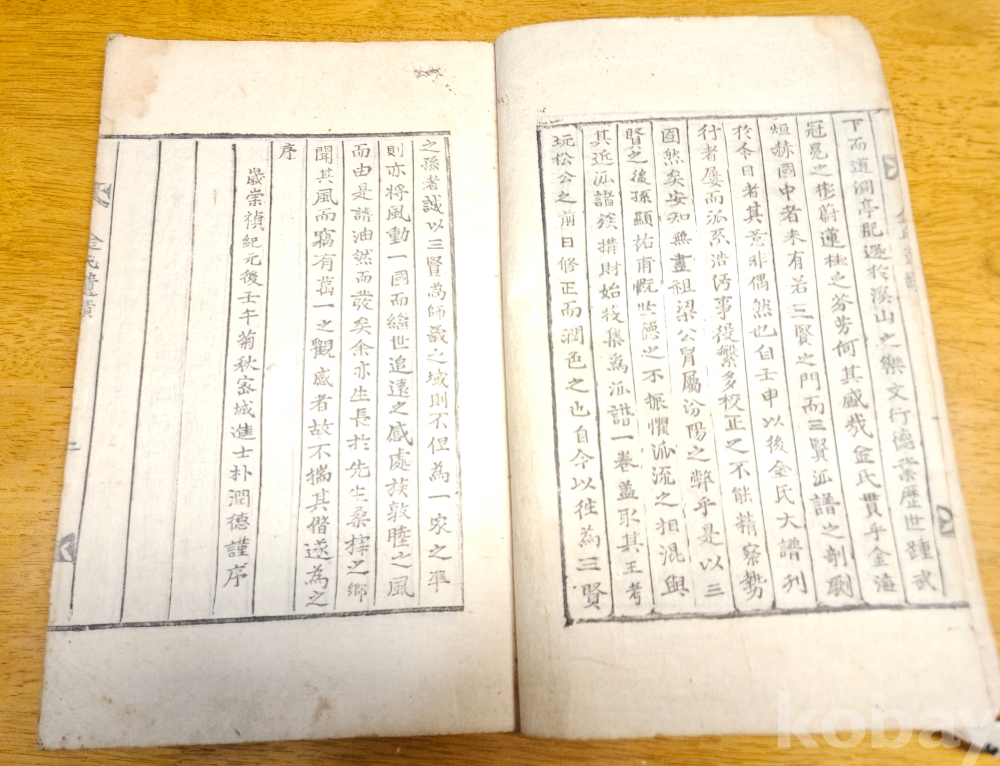 下而道澗亭肥遯於溪山之樂文行德業歷世踵武
冠冕之彬蔚蓮桂之芬芳何其盛哉金氏貫乎金海
烜赫國中者未有若三賢之門而三賢派譜之剞劂
於今日者其意非偶然也自壬申以後金氏大譜刊
行者屢而派系浩汚事役繁多校正之不能精察勢
固然矣安知無盡祖梁公冐屬汾陽之弊乎是以三
賢之後孫顯祐甫慨世德之不振懼派流之相混與
其近派諸族搆財始收集爲派譜一卷盖取其王考
玩松公之前日修正而潤色之也自今以徃為三賢
之孫者誠以三賢為師羲之域則不但為一家之準
則亦将風動一國而繼世追遠之感處族敦睦之風
而由是請油然而發矣余亦生長於先生桑梓之鄉
聞其風而竊有萬一之觀感者故不揣其僭遂為之
序
歲崇禎紀元後壬午菊秋密城進士朴潤德謹序
金氏遺蹟
kobay